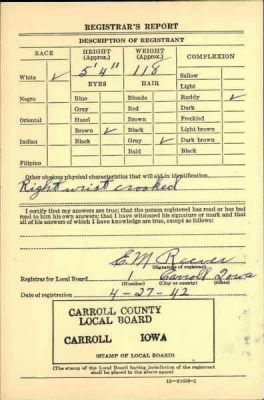 REGISTRAR'S REPORT
DESCRIPTION OF REGISTRANT
RACE HEIGHT (Approx.) WEIGHT (Approx.) COMPLEXION
White ✓ 5'4" 118 Sallow
EYES HAIR Light
Negro Blue Blonde Ruddy ✓
Gray Red Dark
Oriental Hazel Brown Freckled
Brown ✓ Black Light brown
Indian Black Gray ✓ Dark brown
Bald Black
Filipino
Other obvious physical characteristics that will aid in identification
Right wrist crooked
I certify that my answers are true; that the person registered has read or has had
read to him his own answers; that I have witnessed his signature or mark and that
all of his answers of which I have knowledge are true, except as follows:
E M Reever
(Signature of registrar)
Registrar for Local Board 1 Carroll Iowa
(Number) (City or county) (State)
Date of registration 4-27-42
CARROLL COUNTY
LOCAL BOARD
CARROLL IOWA
(STAMP OF LOCAL BOARD)
(The stamp of the Local Board having jurisdiction of the registrant
shall be placed in the above space)